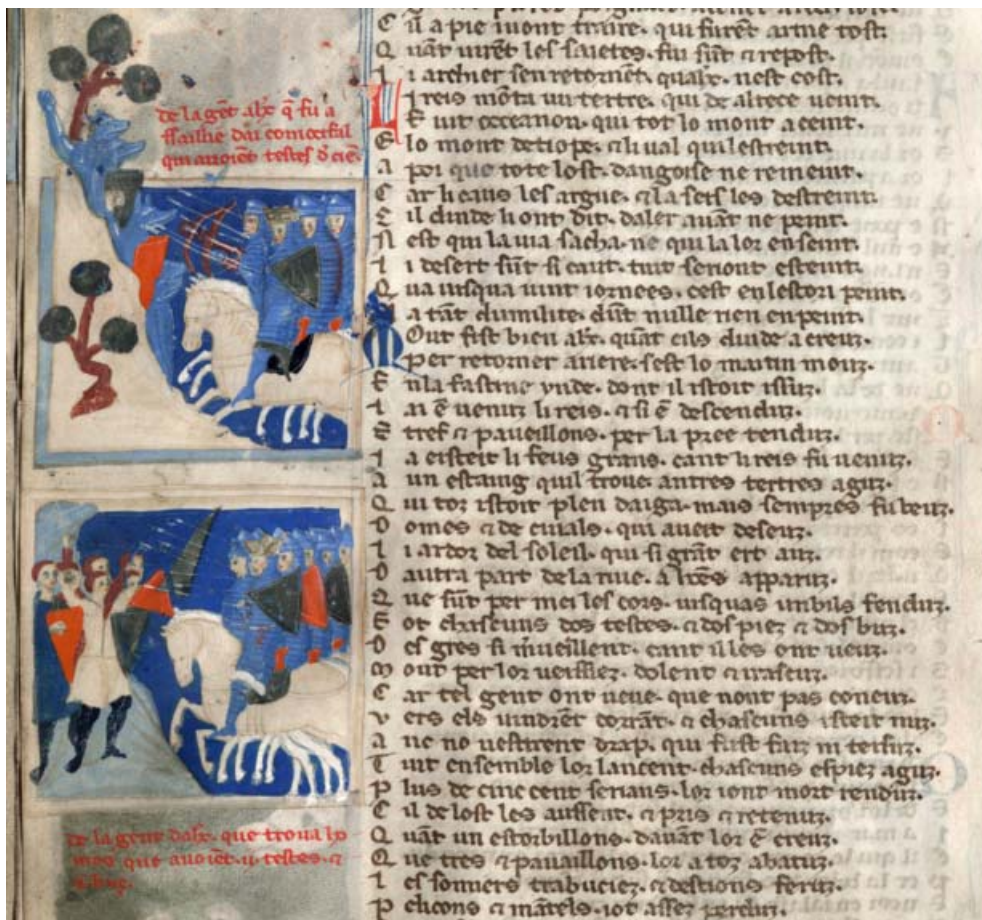 de la gẽt alix̃. q̃ fu a
ssailhe dãi com orsful
qui auoiẽt testes d̃ ciẽ.
C il a pie iuont traire. qui furẽt arme tost.
Q uãt uirẽt les saietes. fiu sũt ⁊ repost.
L i archier sen retornẽt. qualix̃. nest cost.
L i reis mõta un tertre. qui de altece ueint.
E uit occeanon. qui tot lo mont aceint.
E lo mont detiope. ⁊ li ual qui lestreint.
a poi que tote lost. dangoise ne remeint.
C ar li caus les argue. ⁊ la seis les destreint.
C il dinde li ont dit. daler auãt ne peint.
N est qui la uia sacha. ne qui la lor enseint.
L i desert sũt si caut. tuit seriont esteint.
Q ua iusqua uint iornees. cest en lestori peint.
L a tãt dumilite. dũt nulle rien en peint.
M Out fist bien alix̃. quãt cils dinde a creuz.
P er retorner ariere. sest lo matin mouz.
E n la fastine unde. dont il istoit issuz.
L ai ẽ uenuz li reis. ⁊ si ẽ descenduz.
E tref ⁊ paueillons. per la pree tenduz.
L a eisteit li feus grans. cant li reis fu uenuz.
A un estaing quil troue antres tertres aguz.
Q ui toz istoit plen daiga. mais sempres fu beuz.
D omes ⁊ de ciuals. qui aueit desouz.
L i ardoz del soleil. qui si grãt ert auz.
D autra part de la riue. a hões apparuz.
Q ue sũt per mei les cors. iusquas unbils fenduz.
E ot chascuns dos testes. ⁊ dos piez ⁊ dos buz.
D es gres si m̃ueillent. cant il les ont ueuz.
M out per loz ueissiez. dolent ⁊ irascuz.
C ar tel gent ont ueue. que nont pas coneuz.
V ers els uindrẽt corrãt. ⁊ chascuns isteit nuz.
A nc no uestirent drap. qui fust fiuz ni teissuz.
T uit ensemble loz lancent. chascuns espiez aguz.
P lus de cinc cent serians. loz iont mort renduz.
C il de lost les ausient. ⁊ pris ⁊ retenuz.
Q uãt un estorbillons. dauãt loz ẽ creuz.
Q ue tres ⁊ pauaillons. loz a toz abatuz.
L es somiers trabuciez. ⁊ destions feruz.
P elicons ⁊ mãtels. iot assez perduz.
de la gent dalix̃. que troua ho
mes que auoiẽt. ii. testes. ⁊
ii. buz.